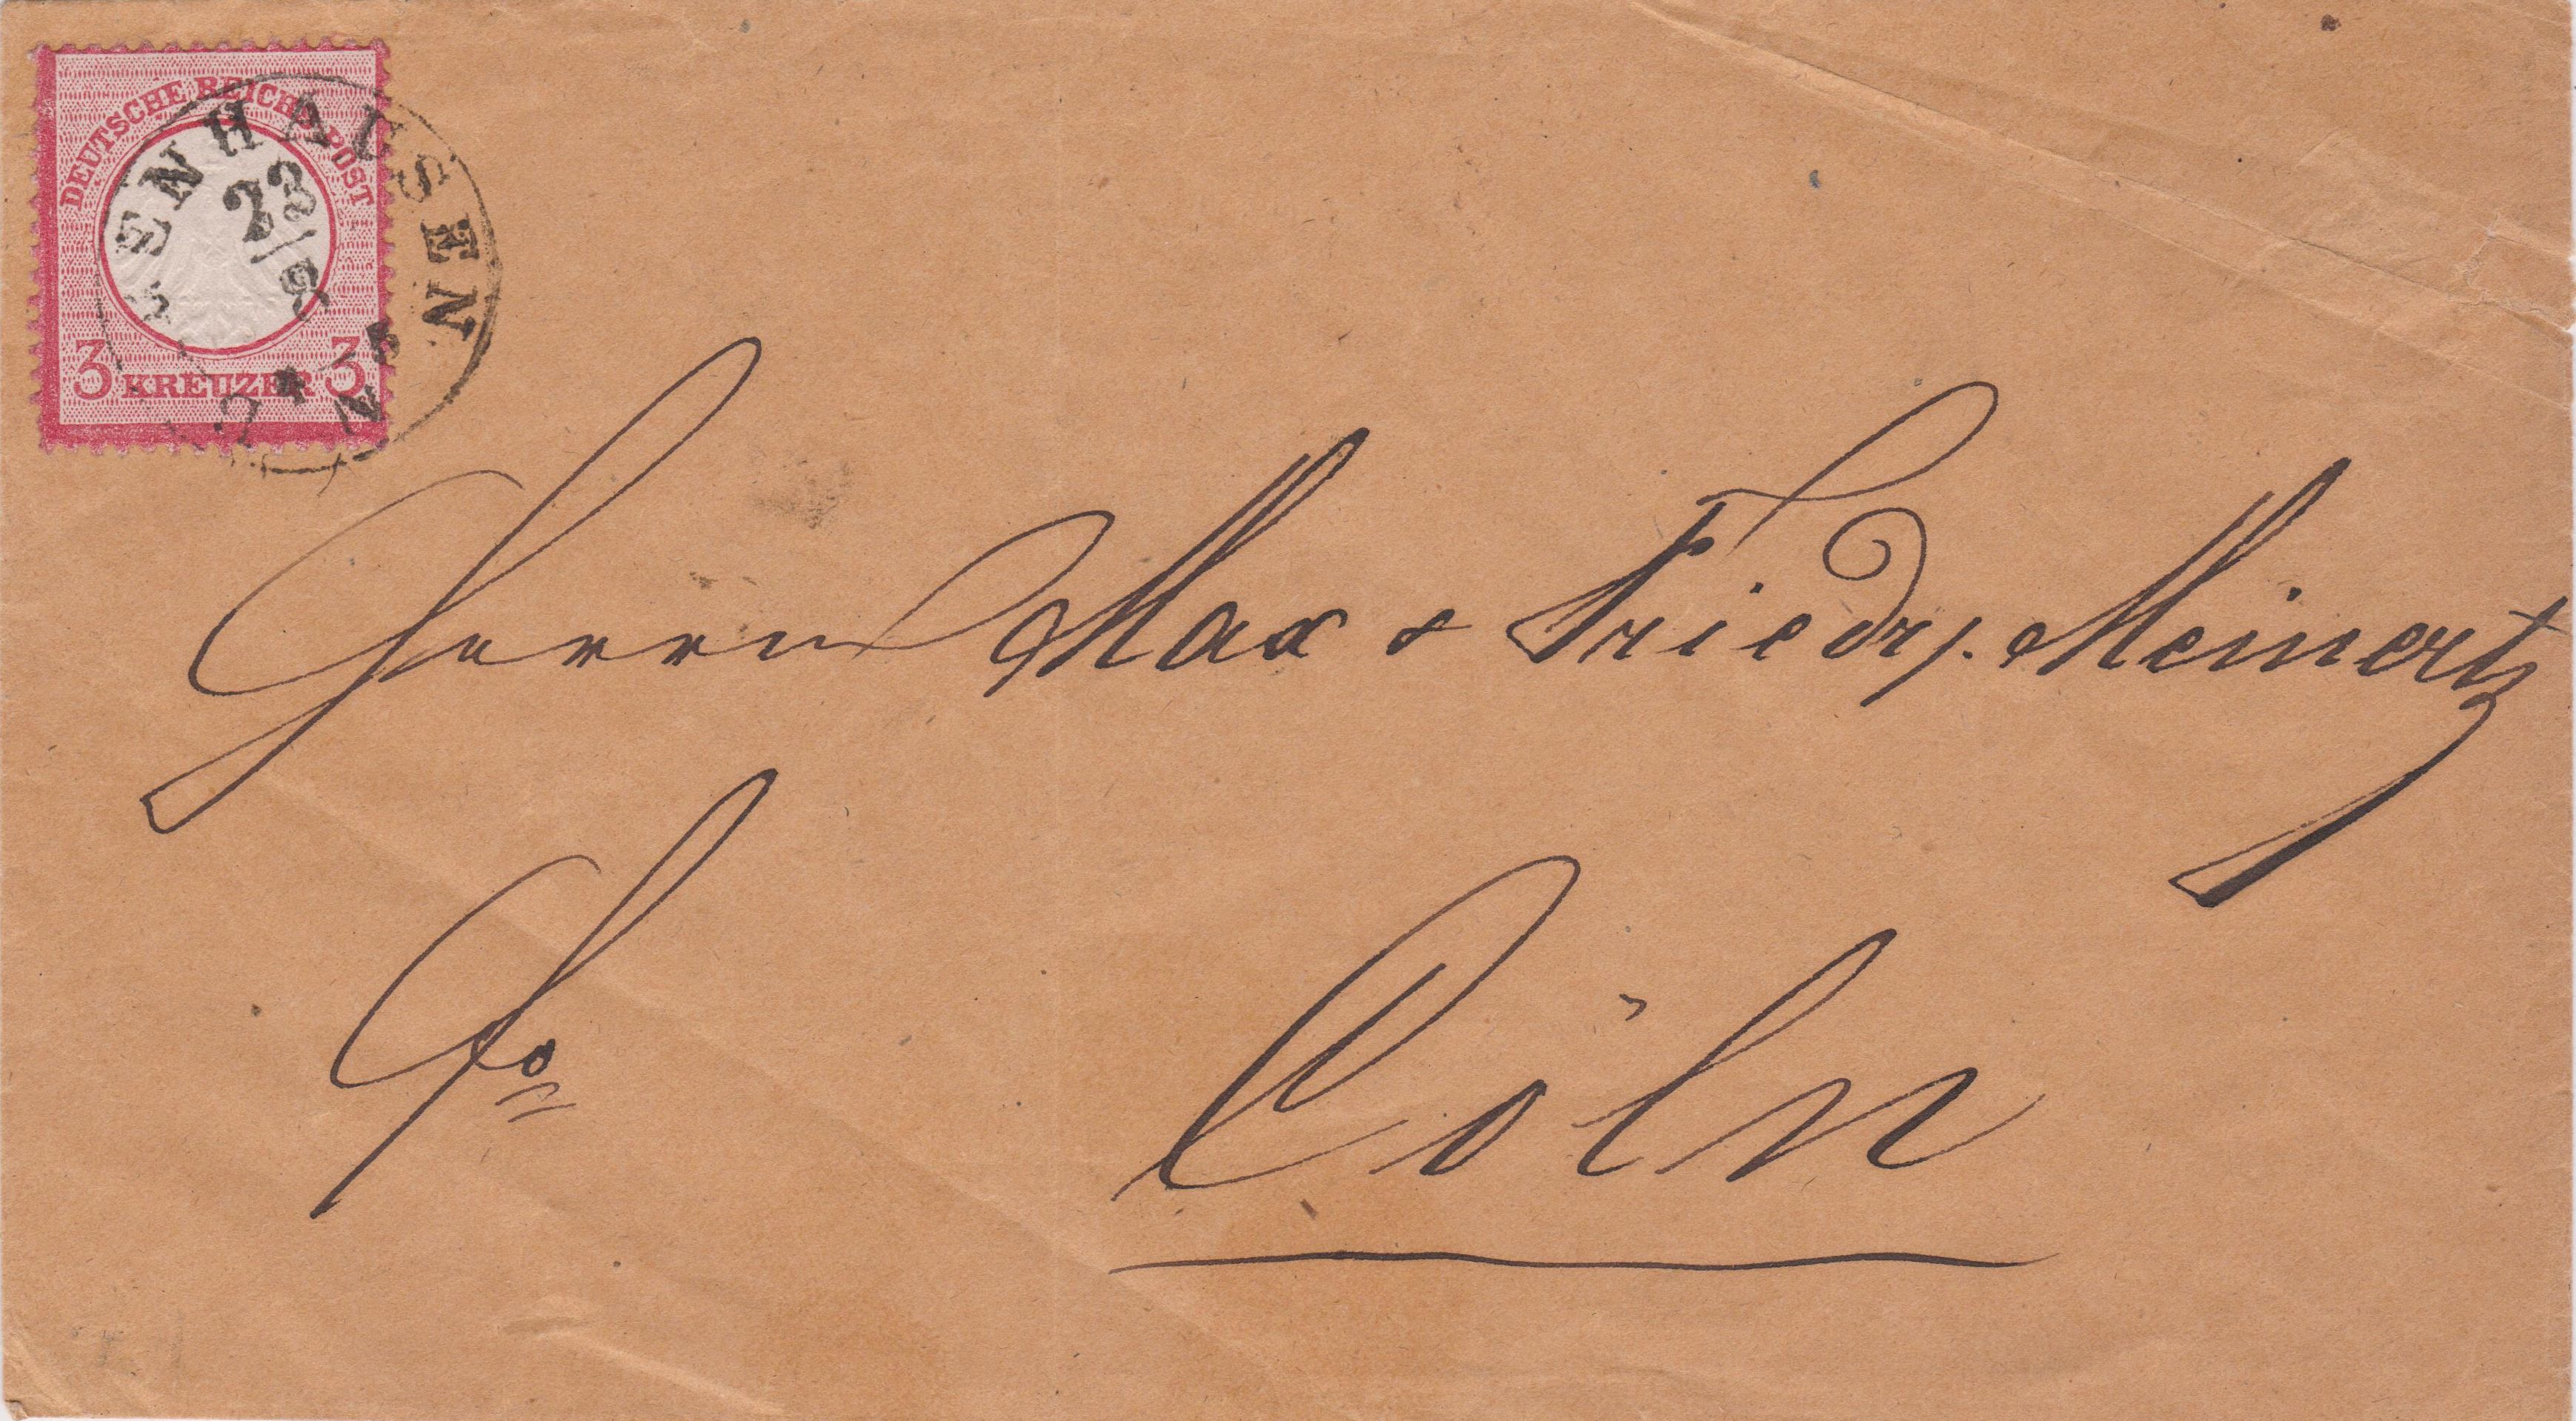 DEUTSCHE REICHS-POST
3 KREUZER 3
ENHAUSEN
23/8
Herrn Max & Friedr. Meinertz
Cöln